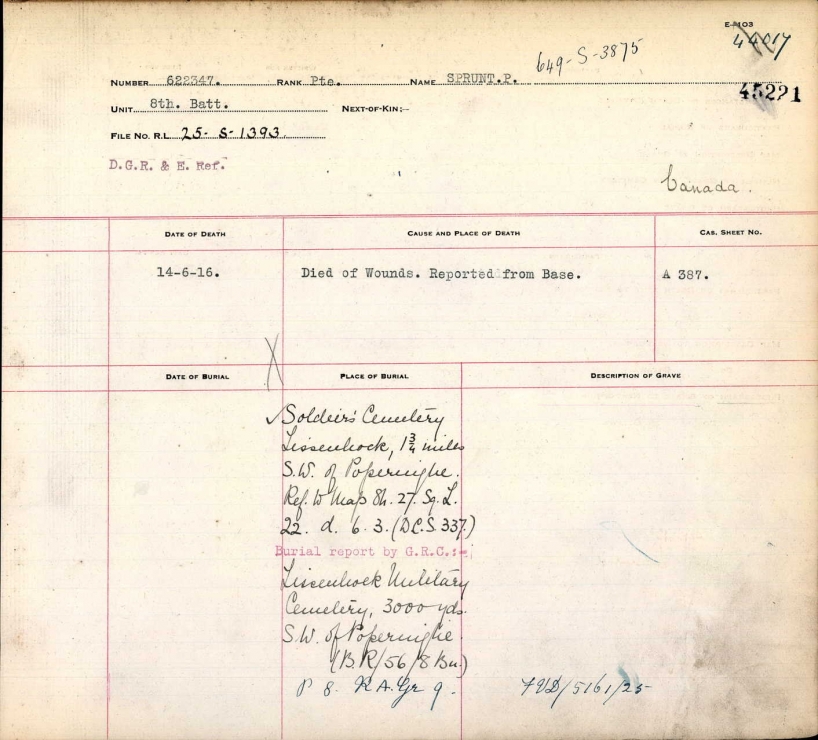 E-P103
44017
649-S-3875
45221
NUMBER 622347. RANK Pte. NAME SPRUNT.P.
UNIT 8th. Batt. NEXT-OF-KIN:-
FILE NO. R.L. 25-S-1393
D.G.R. & E. Ref.
Canada.
DATE OF DEATH CAUSE AND PLACE OF DEATH CAS. SHEET NO.
14-6-16. Died of Wounds. Reported from Base. A 387.
DATE OF BURIAL PLACE OF BURIAL DESCRIPTION OF GRAVE
Soldeirs' Cemetery
Lissenhock, 1¾ miles
S.W. of Poperninghe.
Ref. to Map Sh. 27. Sq. L.
22. d. 6. 3. (D.C.S. 337.)
Burial report by G.R.C.:-
Lissenhoek Military
Cemetery, 3000 yds.
S.W. of Poperninghe.
(B.R/56/8 Bn.)
P 8. R A. Gr 9. /5161/25